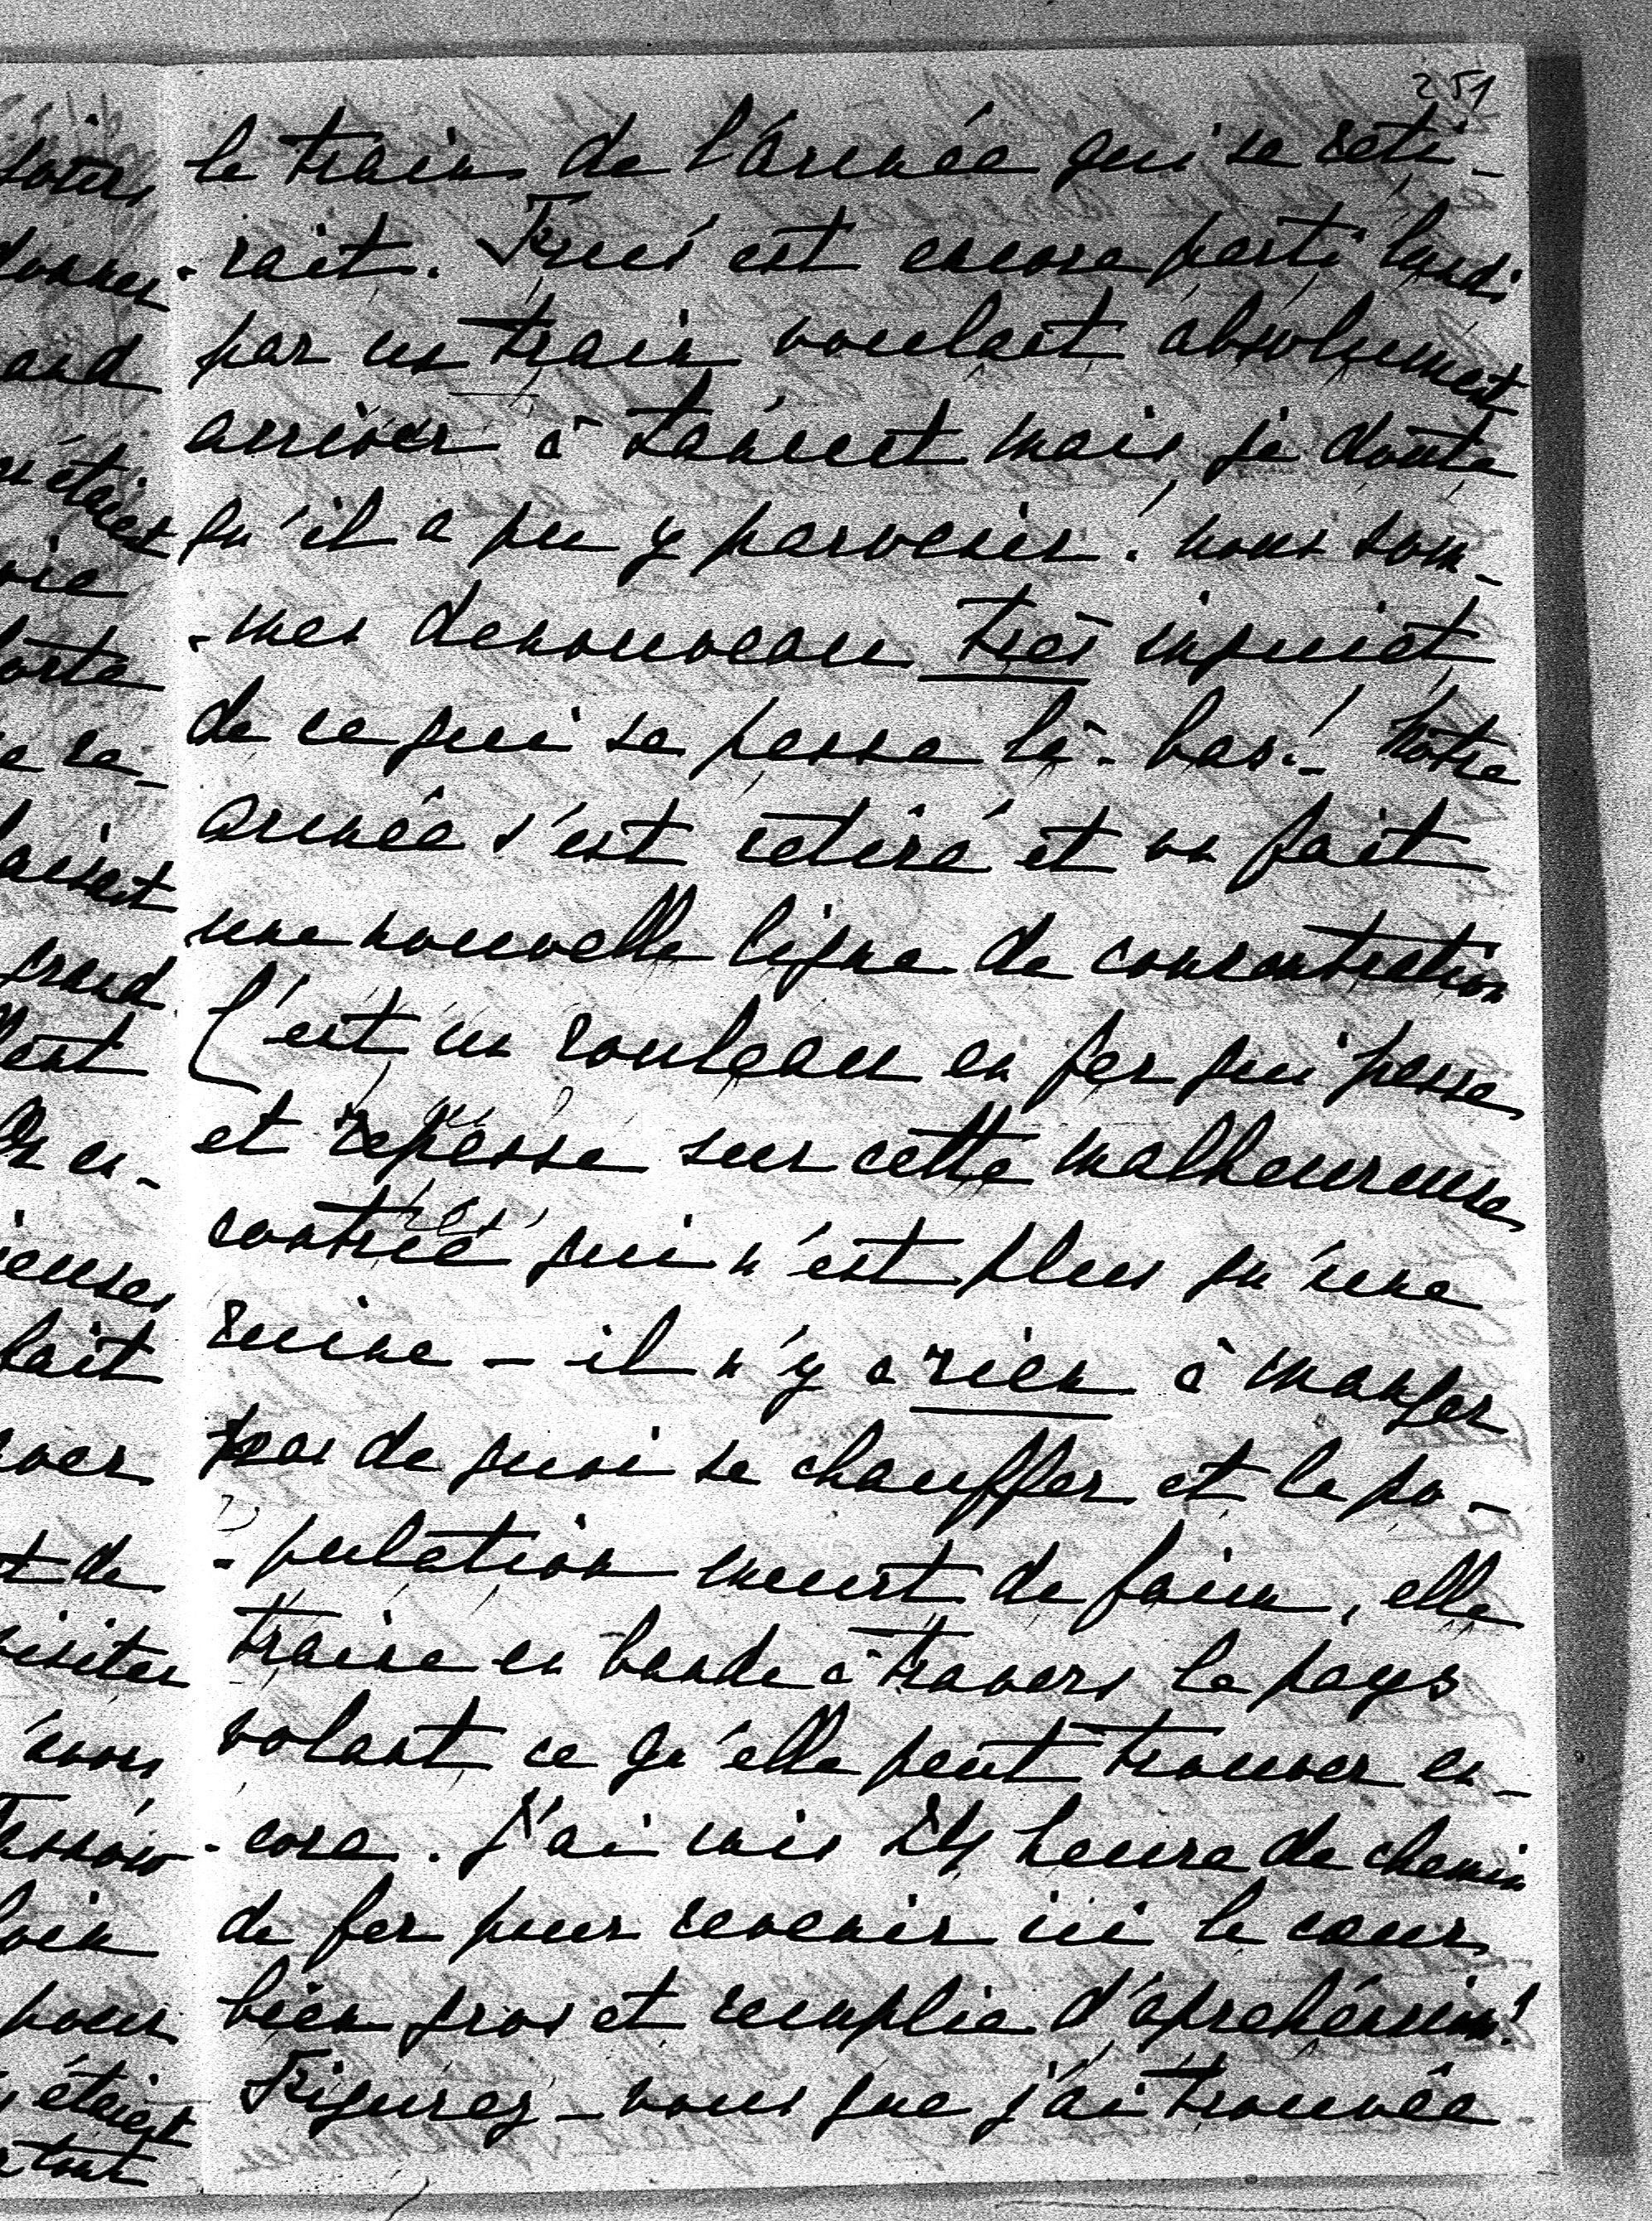 251
le train de l'armée qui se reti-
-rait. Fruś est encore parti lundi
par un train voulant absolument
arriver à Łańcut mais je doute
qu'il a pu y parvenir! nous som-
-mes denouveau très inquiet
de ce qui se passe là-bas!- Notre
armée s'est retiré et on fait
une nouvelle ligne de concentration
C'est un rouleau en fer qui passe
et repasse sur cette malheureuse
contrée qui n'est plus qu'une
ruine - il n'y a rien à manger
pas de quoi se chauffer et la po-
-pulation meurt de faim, elle
traine en bande à travers le pays
volant ce qu'elle peut trouver en-
-core. J'ai mis 24 heure de chemin
de fer pour revenir ici le cœur
bien gros et remplie d'aprehénsion!
Figurez-vous que j'ai trouvée
donner
n'étaient
grand
fait
et de
visiter
pour
étaient
tout